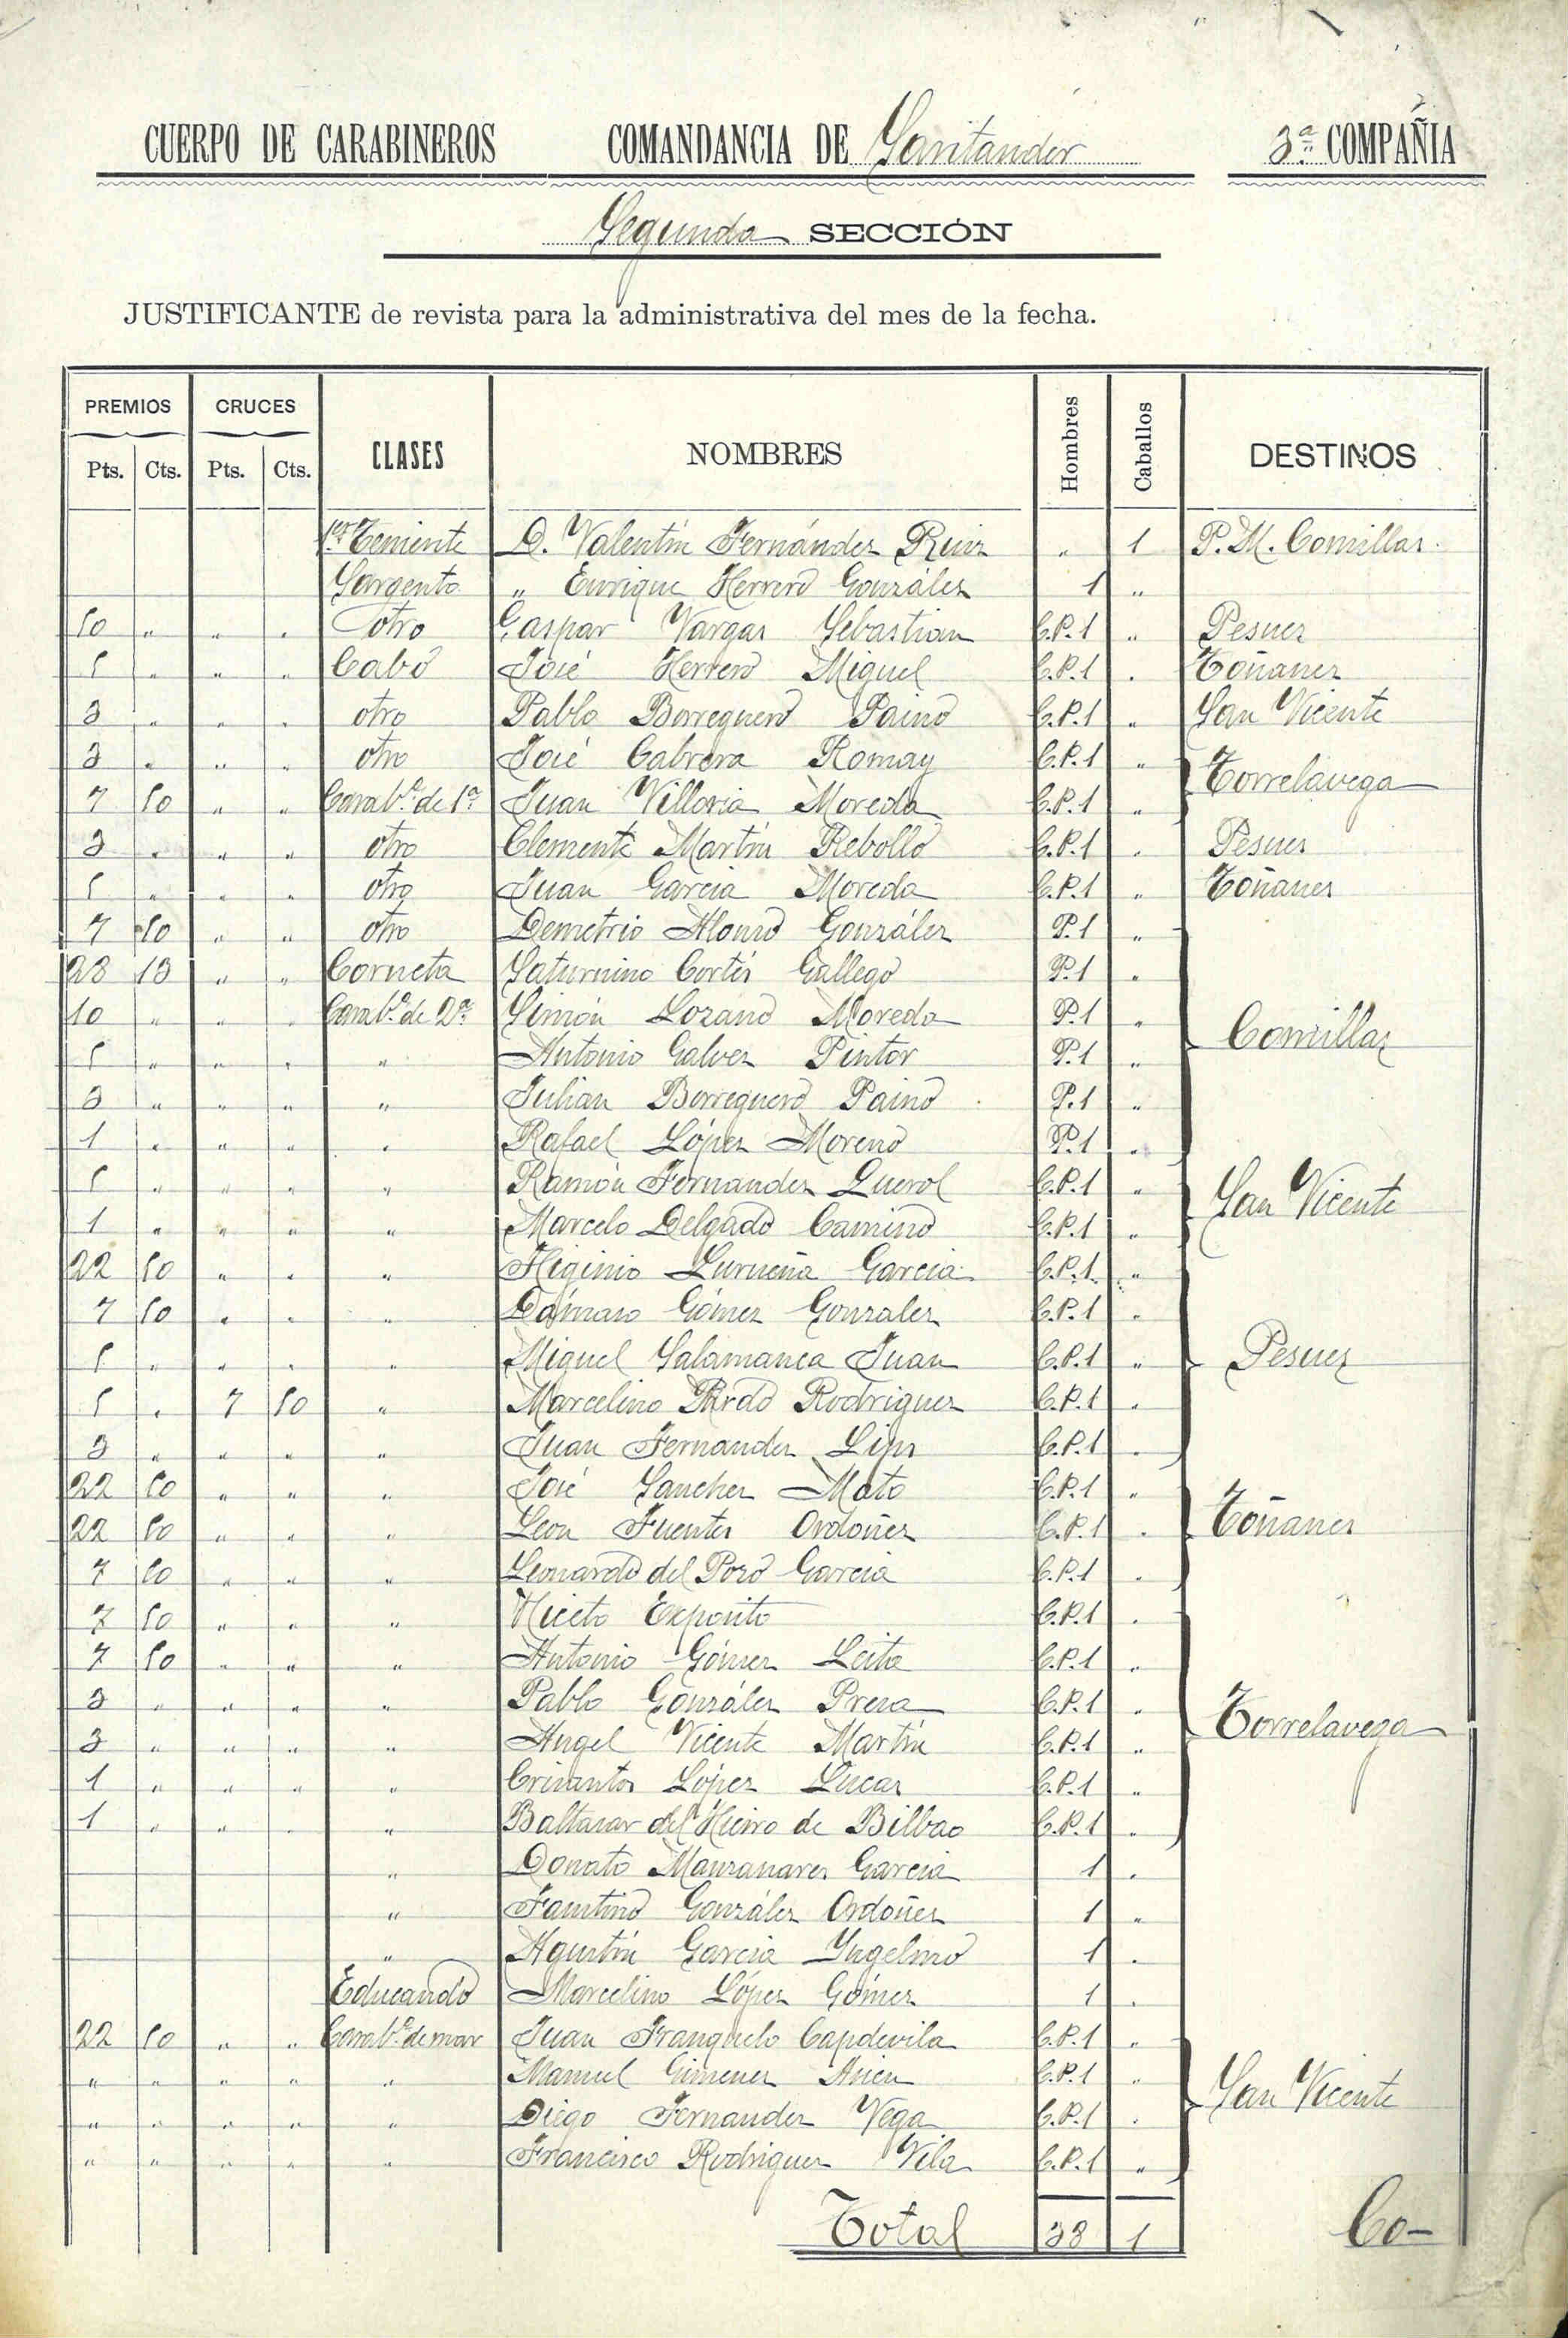 CUERPO DE CARABINEROS COMANDANCIA DE Santander 3ª COMPAÑIA
Segunda SECCIÓN
JUSTIFICANTE de revista para la administrativa del mes de la fecha.
PREMIOS CRUCES CLASES NOMBRES Hombres Caballos DESTINOS
Pts. Cts. Pts. Cts.
1er Teniente D. Valentín Fernández Ruiz " 1 P. M. Comillas
Sargento " Enrique Herrero González 1 "
10 " " " otro Gaspar Vargas Sebastian C.P. 1 " Pesues
5 " " " Cabo José Herrero Miguel C.P. 1 " Toñanes
3 " " " otro Pablo Borreguero Paino C.P. 1 " San Vicente
3 " " " otro José Cabrera Romay C.P. 1 "
Torrelavega
7 50 " " Carab.º de 1ª Juan Villoria Moreda C.P. 1 "
3 " " " otro Clemente Martín Rebollo C.P. 1 " Pesues
5 " " " otro Juan Garcia Moreda C.P. 1 " Toñanes
7 50 " " otro Demetrio Alonso González P. 1 "
28 13 " " Corneta Saturnino Cortés Gallego P. 1 "
10 " " " Carab.º de 2ª Simón Lozano Moreda P. 1 "
Comillas
5 " " " " Antonio Galvez Pintor P. 1 "
3 " " " " Julian Borreguero Paino P. 1 "
1 " " " " Rafael López Moreno P. 1 "
5 " " " " Ramón Fernandez Querol C.P. 1 "
San Vicente
1 " " " " Marcelo Delgado Camino C.P. 1 "
22 50 " " " Higinio Lurueña Garcia C.P. 1 "
7 50 " " " Dámaso Gómez Gonzalez C.P. 1 "
5 " " " " Miguel Salamanca Juan C.P. 1 " Pesues
5 " 7 50 " Marcelino Pardo Rodriguez C.P. 1 "
3 " " " " Juan Fernandez C.P. 1 "
22 50 " " " José Sanchez Mato C.P. 1 "
22 50 " " " Leon Fuentes Ordoñez C.P. 1 " Toñanes
7 50 " " " Leonardo del Pozo Garcia C.P. 1 "
7 50 " " " Niceto Exposito C.P. 1 "
7 50 " " " Antonio Gómez Leita C.P. 1 "
3 " " " " Pablo González Presa C.P. 1 "
Torrelavega
3 " " " " Angel Vicente Martín C.P. 1 "
1 " " " " Crisantos López Lucas C.P. 1 "
1 " " " " Baltasar del Hierro de Bilbao C.P. 1 "
" Donato Manzanares Garcia 1 "
" Faustino González Ordoñez 1 "
" Agustín Garcia Yngelmo 1 "
Educando Marcelino López Gómez 1 "
22 50 " " Carab.º de mar Juan Franquelo Capdevila C.P. 1 "
" " " " " Manuel Gimenez C.P. 1 "
San Vicente
" " " " " Diego Fernandez Vega C.P. 1 "
" " " " " Francisco Rodriguez Vila C.P. 1 "
Total 38 1
Co-